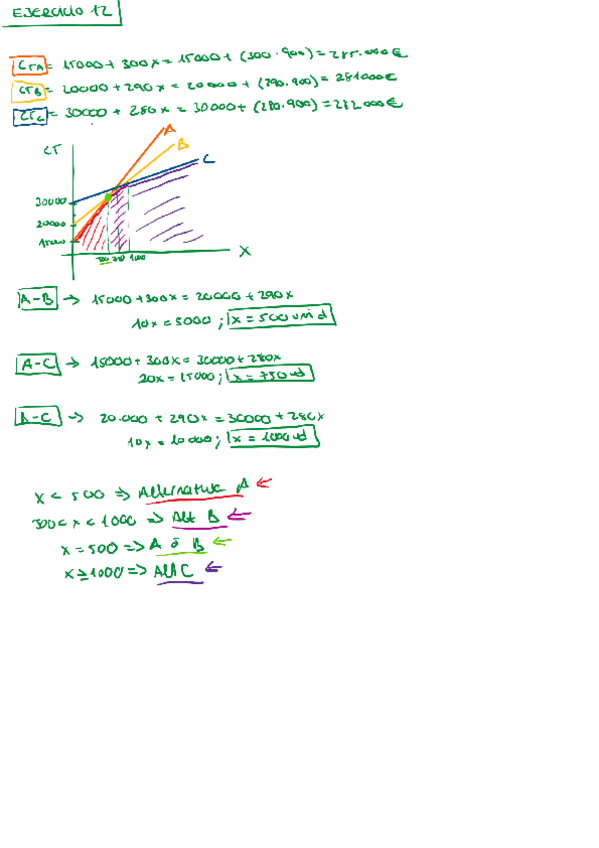 EJERCICIO 12
CTA = 15000 + 300x = 15000 + (300 · 900) = 285.000€
CTB = 20000 + 290x = 20000 + (290.900) = 281000€
CTC = 30000 + 280x = 30000 + (280.900) = 282000€
CT
A
B
C
30000
20000
15000
500 750 1000
X
A-B → 15000 + 300x = 20000 + 290x
10x = 5000 ; x = 500 unid
A-C → 15000 + 300x = 30000 + 280x
20x = 15000 ; x = 750 ud
B-C → 20.000 + 290x = 30000 + 280x
10x = 10000 ; x = 1000 ud
x < 500 ⇒ Alternativa A ←
500 < x < 1000 ⇒ Alt B ←
x = 500 ⇒ A ó B ←
x ≥ 1000 ⇒ Alt C ←